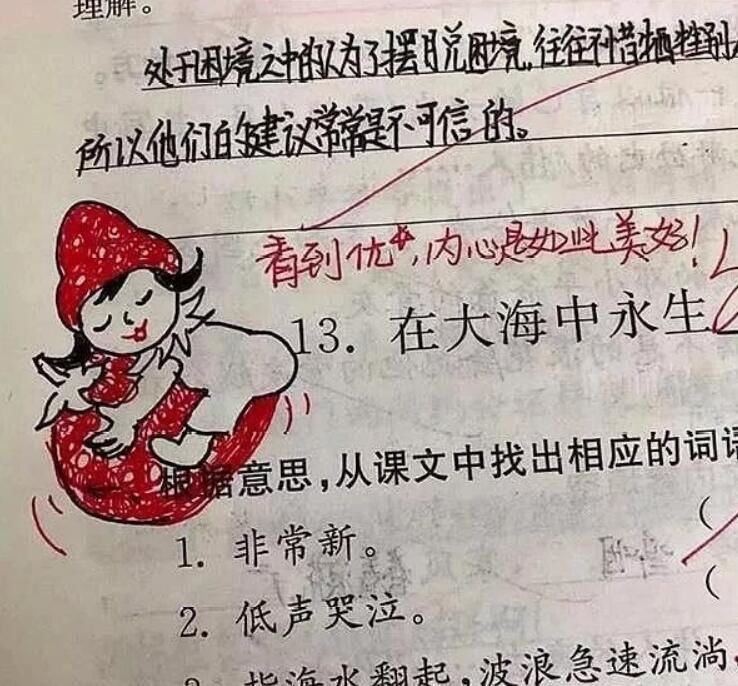 理解。
处于困境之中的人为了摆脱困境,往往不惜牺牲别
所以他们的建议常常是不可信的。
看到优*,内心是如此美好!
13. 在大海中永生
根据意思,从课文中找出相应的词语
1. 非常新。 (
2. 低声哭泣。 (
指海水翻起,波浪急速流淌